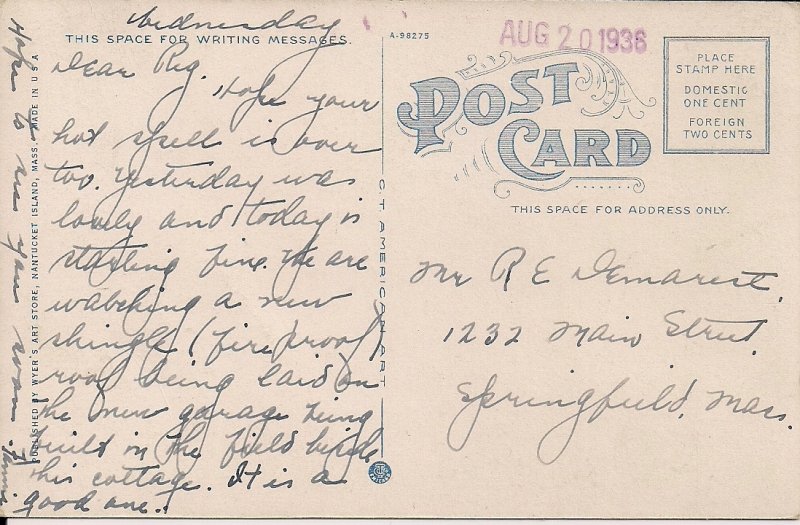 Wednesday
THIS SPACE FOR WRITING MESSAGES.
Dear Reg.
Hope your
hot spell is over
too. Yesterday was
lovely and today is
starting fine. We are
watching a new
shingle (fireproof)
roof being laid on
the new garage being
built in the field beside
this cottage. It is a
good one.
Hope to see you soon.
PUBLISHED BY WYER'S ART STORE, NANTUCKET ISLAND, MASS. MADE IN U S A
CT AMERICAN ART
A-98275
AUG 20 1936
POST
CARD
PLACE
STAMP HERE
DOMESTIC
ONE CENT
FOREIGN
TWO CENTS
THIS SPACE FOR ADDRESS ONLY.
Mr R E Demarest.
1232 Main Street.
Springfield, Mass.